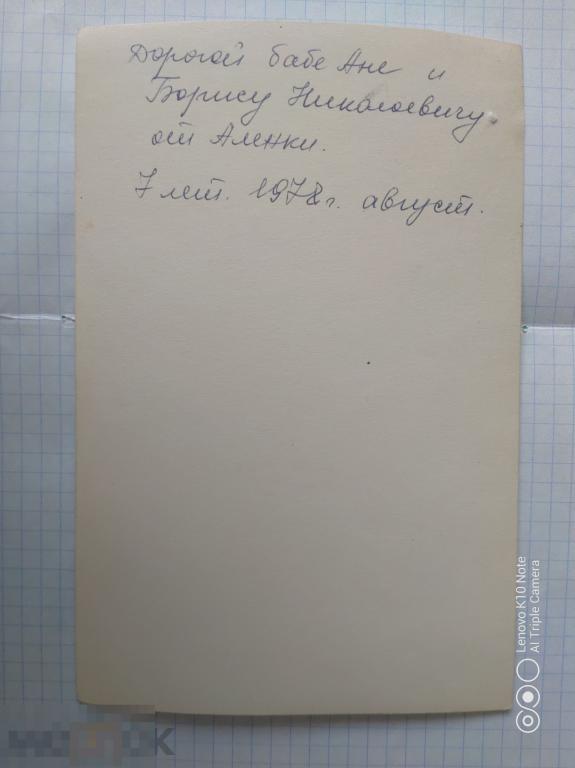 Дорогой бабе Ане и
Борису Николаевичу
от Аленки.
7 лет. 1978г. август.
Lenovo K10 Note
AI Triple Camera